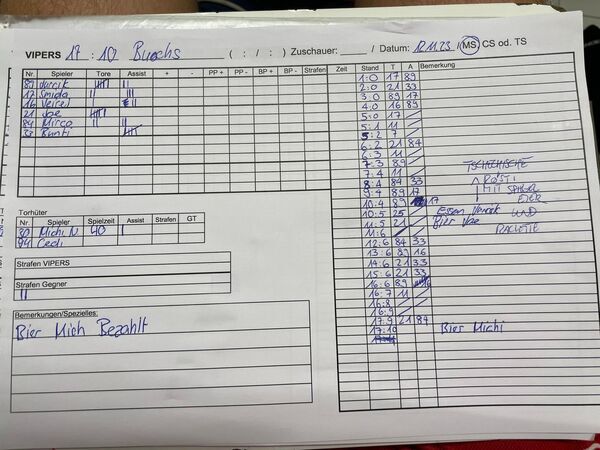 VIPERS 17 : 10 Buochs ( : / : ) Zuschauer: Datum: 12.11.23 / MS CS od. TS
Nr. Spieler Tore Assist + - PP + PP - BP + BP - Strafen
Zeit Stand T A Bemerkung
17 Smida
16
21
84 Mirco
33 Bünti
1:0 17 89
2:0 21 89
3:0 89 17
4:0 16 89
5:0 17
5:1 11
5:2 7
6:2 21 84
6:3 11
7:3 89
7:4 11
8:4 84 33
9:4 89 17
10:4 89 17
10:5 25
11:5 21
11:6
12:6 84 33
13:6 89 16
14:6 21 33
15:6 21 33
16:6 89 16
16:7 11
16:8
16:9
17:9 21 84
17:10
TSCHECHISCHE
RÖSTI
MIT SPIEGEL
EIER
UND
RACLETTE
Essen
Bier
Bier Michi
Torhüter
Nr. Spieler Spielzeit Assist Strafen GT
30 Michi N 40 I
94 Cedi
Strafen VIPERS
Strafen Gegner
II
Bemerkungen/Spezielles:
Bier Mich Bezahlt